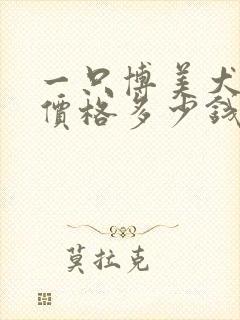 一只博美犬
價格多少錢
莫拉克